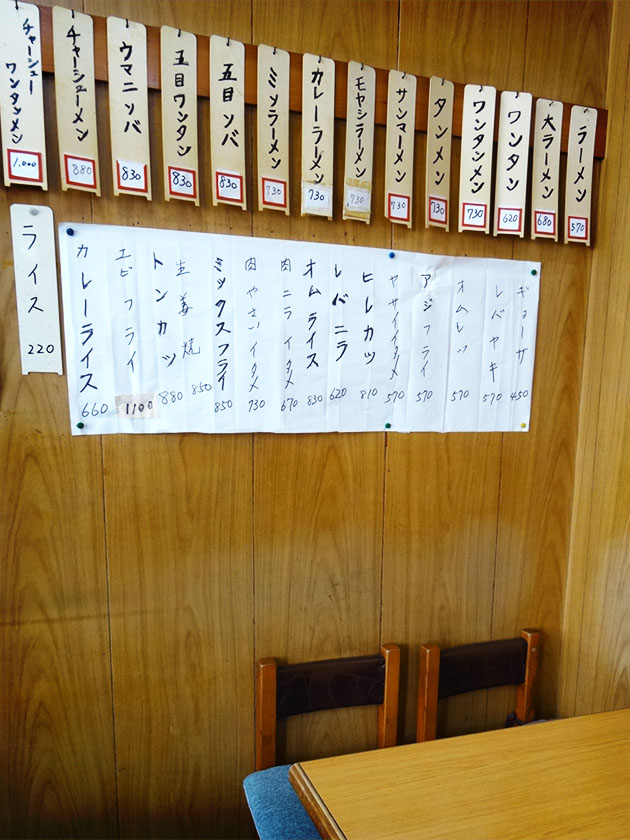 ラーメン 570
大ラーメン 680
ワンタン 620
ワンタンメン 730
タンメン 730
サンマーメン 730
モヤシラーメン 730
カレーラーメン 730
ミソラーメン 730
五目ソバ 830
五目ワンタン 830
ウマニソバ 830
チャーシューメン 880
チャーシューワンタンメン 1,000
ギョーザ 450
レバヤキ 570
オムレツ 570
アジフライ 570
ヤサイイタメ 570
ヒレカツ 810
レバニラ 620
オムライス 830
肉ニライタメ 670
肉やさいイタメ 730
ミックスフライ 850
生姜焼 850
トンカツ 880
エビフライ 1100
カレーライス 660
ライス 220